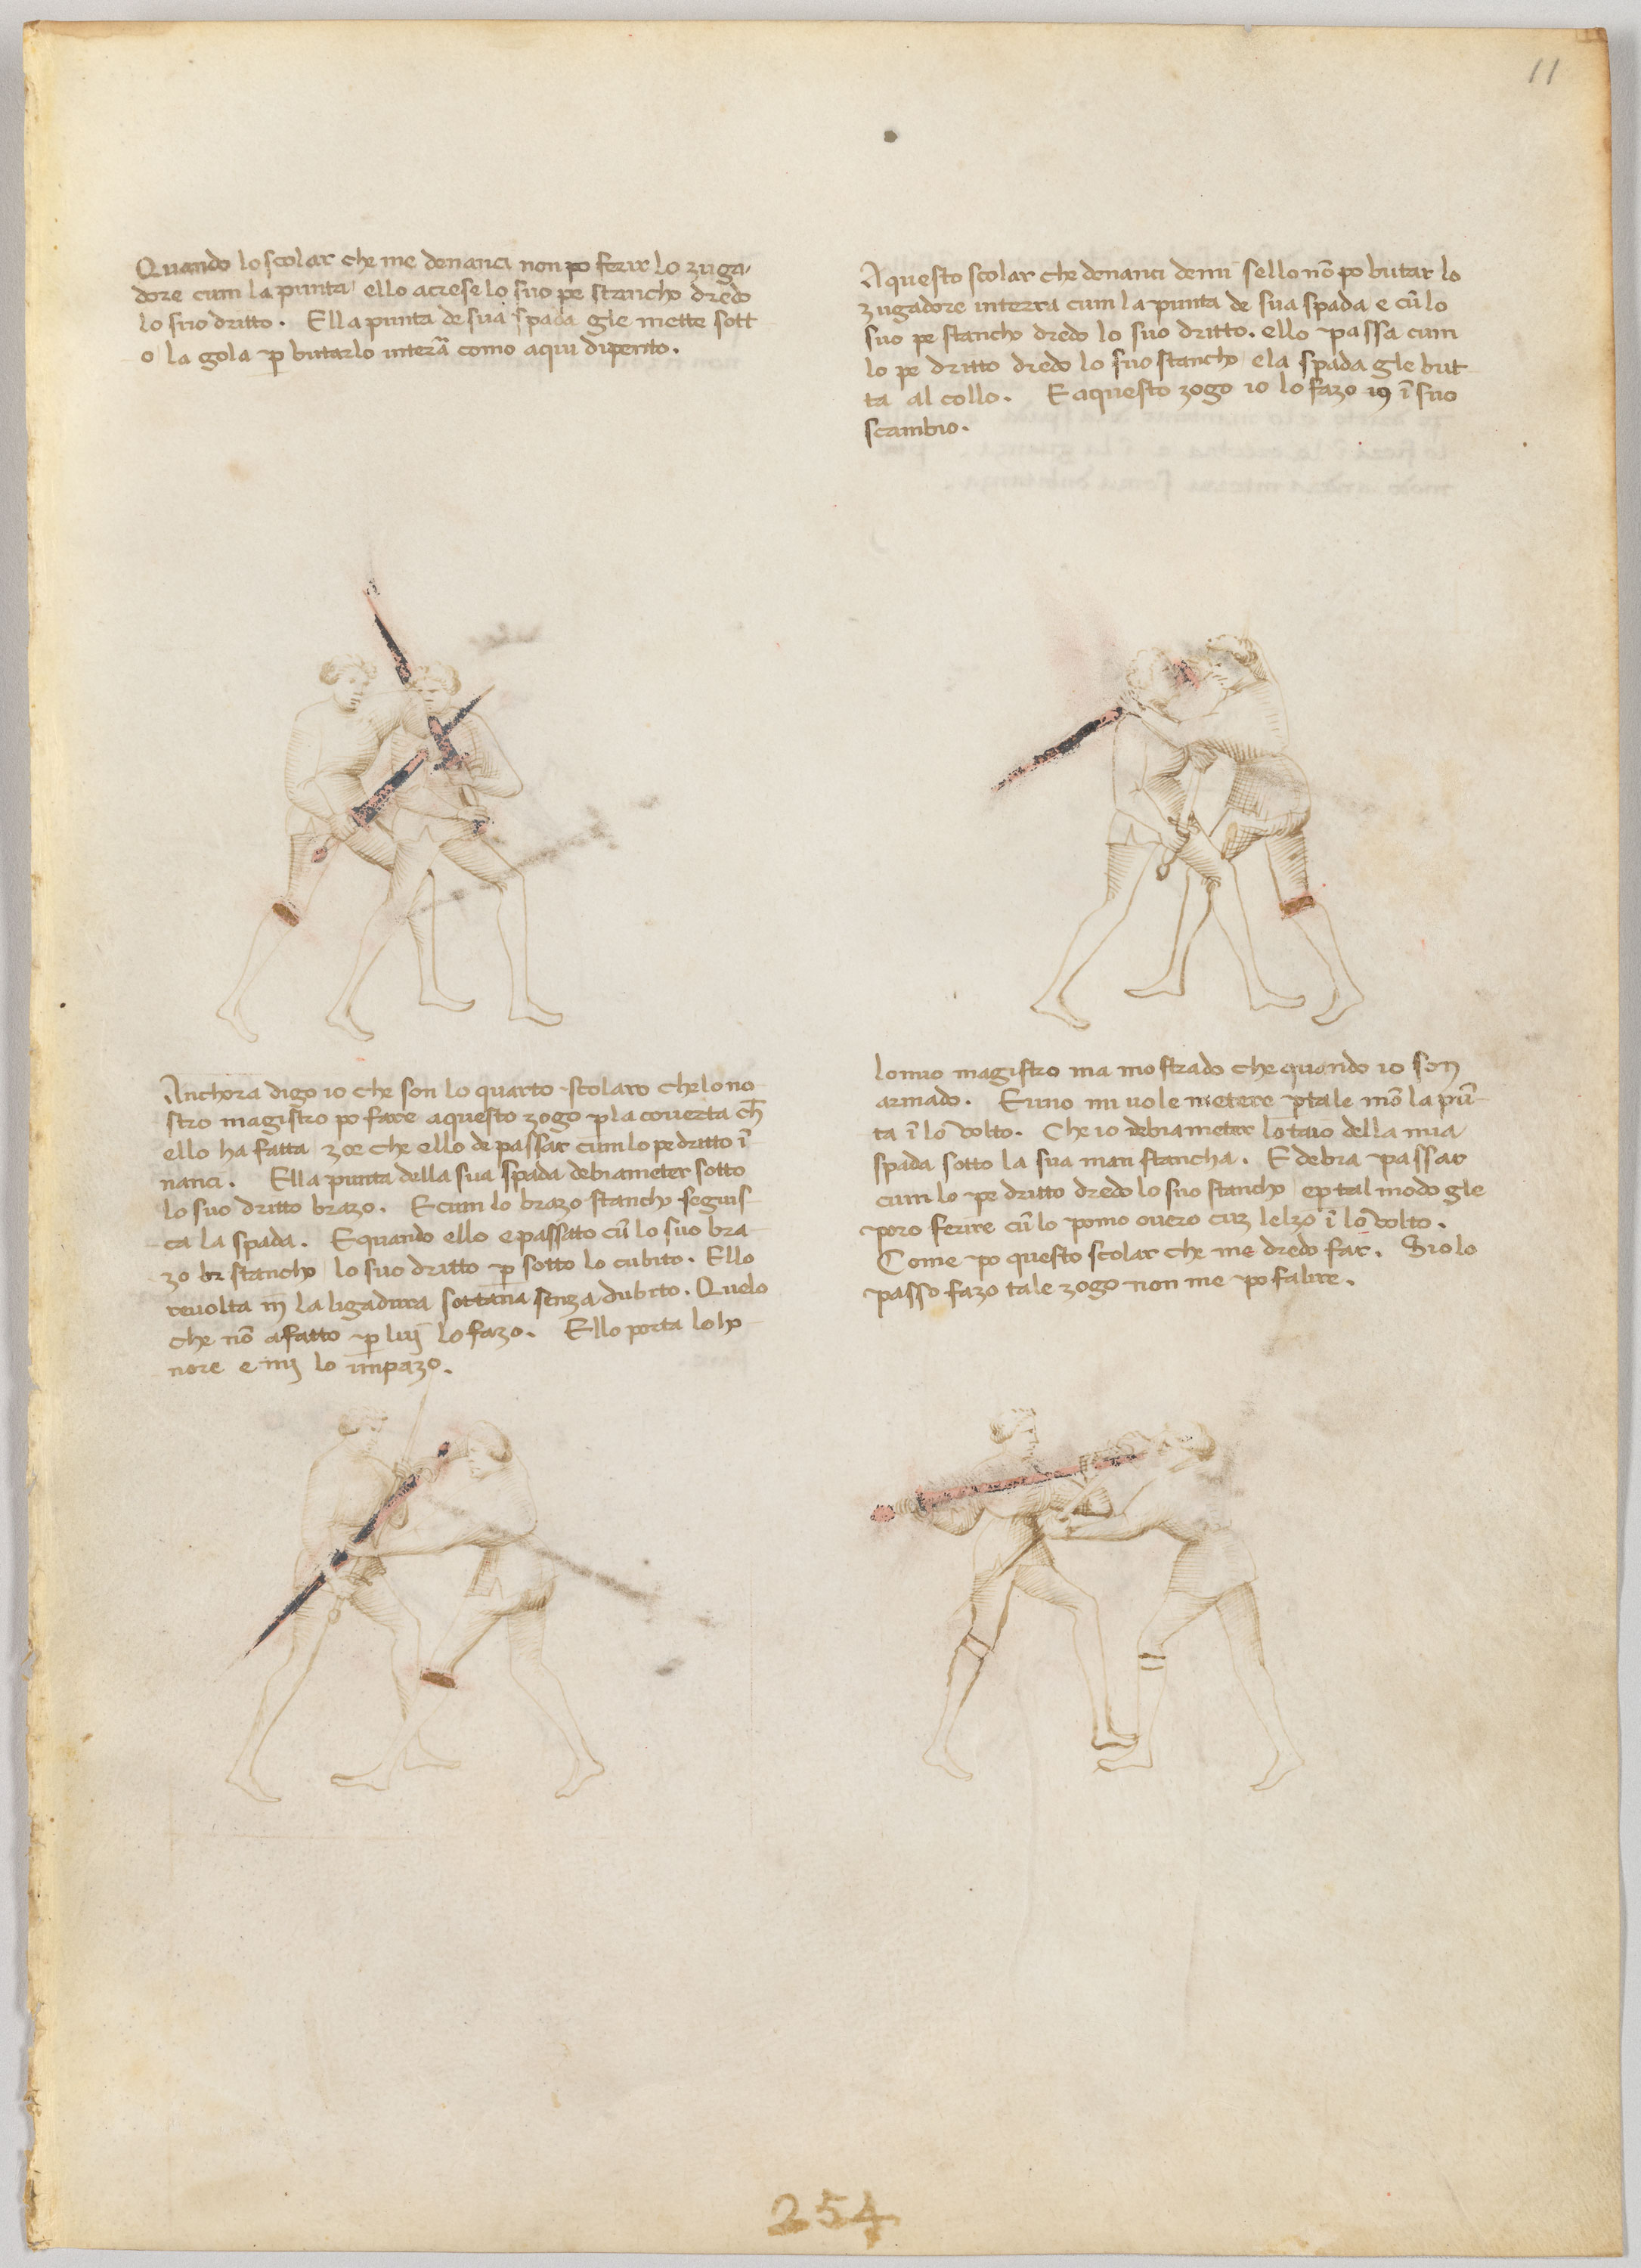 11
Quando lo scolar che me denanci non po ferir lo zuga,
dore cum la punta ello acrese lo suo pe stancho dredo
lo suo dritto. Ella punta de sua spada gle mette sott
o la gola ꝑ butarlo interã como aqui dipento.
Aquesto scolar che denanci demi sello nõ po butar lo
zugadore interra cum la punta de sua spada e cũ lo
suo pe stancho dredo lo suo dritto. ello passa cum
lo pe dritto dredo lo suo stancho ela spada gle but
ta al collo. E aquesto zogo io lo fazo ĩ suo
scambio.
Anchora digo io che son lo quarto scolaro che lo no
stro magistro po fare aquesto zogo ꝑ la coverta ch̃
ello ha fatta zoe che ello de passar cum lo pe dritto ĩ
nanci. Ella punta della sua spada debia meter sotto
lo suo dritto brazo. E cum lo brazo stancho seguis
ca la spada. E quando ello e passato cũ lo suo bra
zo stancho lo suo dritto ꝑ sotto lo cubito. Ello
revolta in la ligadura sottana senza dubito. Quelo
che nõ a fatto ꝑ luj lo fazo. Ello porta lo ho
nore e mj lo impazo.
lo mio magistro ma mostrado che quando io son
armado. E uno mi vole metere ꝑ tale mõ la pũ
ta ĩ lo volto. Che io debia meter lo taio della mia
spada sotto la sua man stancha. E debra passar
cum lo pe dritto dredo lo suo stancho e ꝑ tal modo gle
poro ferire cũ lo pomo overo cuz lelzo ĩ lo volto.
Come po questo scolar che me dredo far. Sio lo
passo fazo tale zogo non me po falire.
254